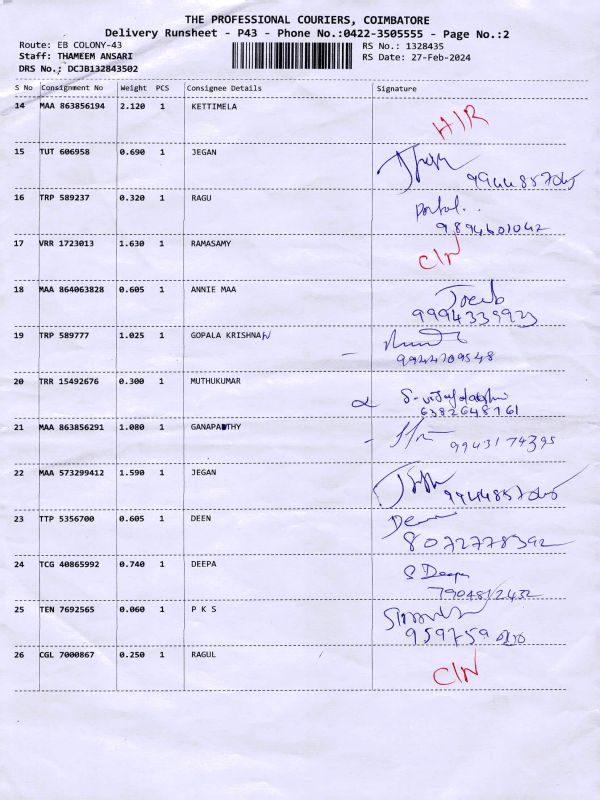 THE PROFESSIONAL COURIERS, COIMBATORE
Delivery Runsheet - P43 - Phone No.:0422-3505555 - Page No.:2
Route: EB COLONY-43 RS No.: 1328435
Staff: THAMEEM ANSARI RS Date: 27-Feb-2024
DRS No.: DCJB132843502
S No Consignment No Weight PCS Consignee Details Signature
14 MAA 863856194 2.120 1 KETTIMELA
15 TUT 606958 0.690 1 JEGAN
9944857065
16 TRP 589237 0.320 1 RAGU
9894601042
17 VRR 1723013 1.630 1 RAMASAMY
18 MAA 864063828 0.605 1 ANNIE MAA
9994339923
19 TRP 589777 1.025 1 GOPALA KRISHNAN
9944709548
20 TRR 15492676 0.300 1 MUTHUKUMAR
6382648761
21 MAA 863856291 1.080 1 GANAPATHY
9943174395
22 MAA 573299412 1.590 1 JEGAN
9944857065
23 TTP 5356700 0.605 1 DEEN
8072778392
24 TCG 40865992 0.740 1 DEEPA
S Deepa
7904812432
25 TEN 7692565 0.060 1 P K S
26 CGL 7000867 0.250 1 RAGUL